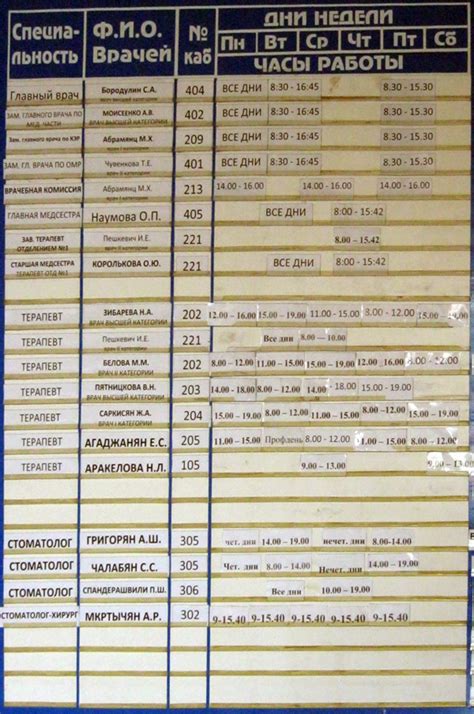 Специальность Ф.И.О. Врачей № каб ДНИ НЕДЕЛИ
Пн Вт Ср Чт Пт Сб
ЧАСЫ РАБОТЫ
Главный врач Бородулин С.А. 404 ВСЕ ДНИ 8:30 - 16:45 8.30 - 15.30
ЗАМ. ГЛАВНОГО ВРАЧА ПО МЕД. ЧАСТИ МОИСЕЕНКО А.В. ВРАЧ ВЫСШЕЙ КАТЕГОРИИ 402 ВСЕ ДНИ 8:30 - 16:45 8:30 - 15:30
Зам. главного врача по КЭР Абрамянц М.Х. 209 ВСЕ ДНИ 8:30 - 16:45 8:30 - 15:30
ЗАМ. ГЛ. ВРАЧА ПО ОМР Чувенкова Т.Е. 401 ВСЕ ДНИ 8:30 - 16:45 8:30 - 15:30
ВРАЧЕБНАЯ КОМИССИЯ Абрамянц М.Х. 213 14.00 - 16.00 14.00 - 16.00 14.00 - 16.00
ГЛАВНАЯ МЕДСЕСТРА Наумова О.П. 405 ВСЕ ДНИ 8:00 - 15:42
ЗАВ. ТЕРАПЕВТ ОТДЕЛЕНИЕМ №1 Пешкевич И.Е. 221 8.00 – 15.42
СТАРШАЯ МЕДСЕСТРА ТЕРАПЕВТ ОТД №1 КОРОЛЬКОВА О.Ю. 221 ВСЕ ДНИ 8:00 - 15:42
ТЕРАПЕВТ ЗИБАРЕВА Н.А. ВРАЧ ВЫСШЕЙ КАТЕГОРИИ 202 12.00 – 16.00 15.00 – 19.00 11.00 - 15.00 8.00 - 12.00 15.00 – 19.00
ТЕРАПЕВТ Пешкевич И.Е. 221 Все дни 8.00 — 10.00
ТЕРАПЕВТ БЕЛОВА М.М. ВРАЧ ВЫСШЕЙ КАТЕГОРИИ 202 8.00 – 12.00 11.00 – 15.00 15.00 – 19.00 12.00 – 16.00 8.00 - 12.00
ТЕРАПЕВТ ПЯТНИЦКОВА В.Н. 203 14.00 - 18.00 8.00 – 12.00 14.00 - 18.00 15.00 - 19.00
ТЕРАПЕВТ САРКИСЯН Ж.А. 204 15.00 – 19.00 8.00 – 12.00 11.00 – 15.00 8.00 – 12.00 15.00 – 19.00
ТЕРАПЕВТ АГАДЖАНЯН Е.С. 205 11.00 – 15.00 Профдень 8.00 - 12.00 11.00 – 15.00 8.00 – 12.00
ТЕРАПЕВТ АРАКЕЛОВА Н.Л. 105 9.00 – 13.00 9.00 – 13.00
СТОМАТОЛОГ ГРИГОРЯН А.Ш. 305 чет. дни 14.00 – 19.00 нечет. дни 8.00-14.00
СТОМАТОЛОГ ЧАЛАБЯН С.С. 305 Чет. дни 8.00 – 14.00 Нечет. дни 14.00 – 19.00
СТОМАТОЛОГ СПАНДЕРАШВИЛИ П.Ш. 306 Все дни 10.00 – 19.00
СТОМАТОЛОГ-ХИРУРГ МКРТЫЧЯН А.Р. 302 9-15.40 9-15.40 9-15.40 9-15.40 9-15.40